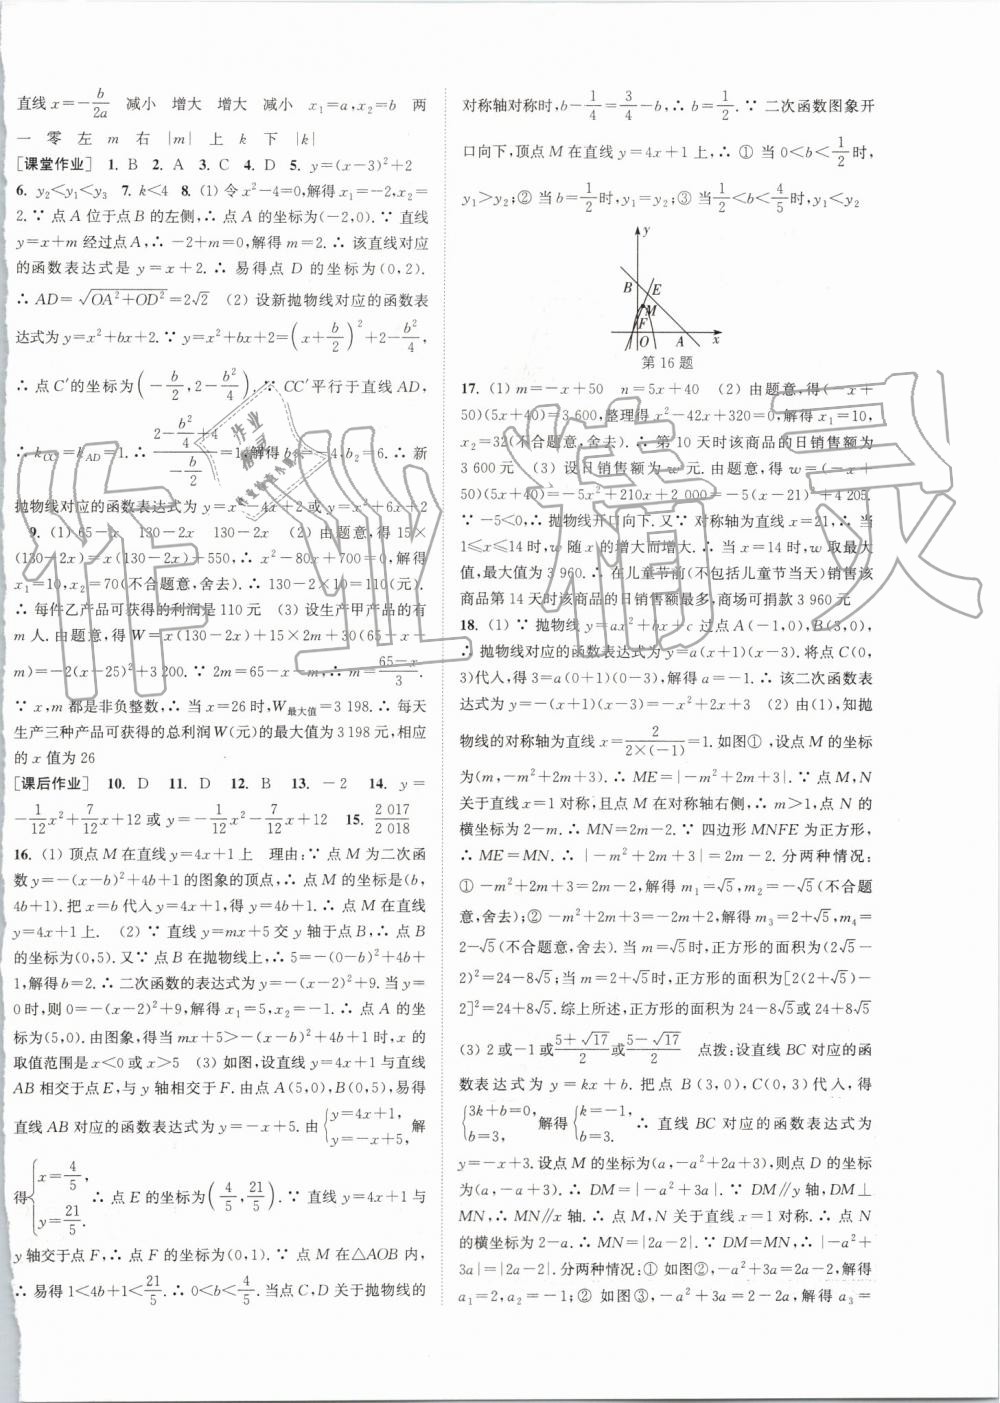 直线 x=-b/2a 减小 增大 增大 减小 x₁=a,x₂=b 两
一 零 左 m 右 |m| 上 k 下 |k|
[课堂作业] 1. B 2. A 3. C 4. D 5. y=(x-3)²+2
6. y₂<y₁<y₃ 7. k<4 8. (1) 令 x²-4=0,解得 x₁=-2,x₂=
2.∵ 点 A 位于点 B 的左侧,∴ 点 A 的坐标为(-2,0).∵ 直线
y=x+m 经过点 A,∴ -2+m=0,解得 m=2.∴ 该直线对应
的函数表达式是 y=x+2.∴ 易得点 D 的坐标为(0,2).
∴ AD=√(OA²+OD²)=2√2 (2) 设新抛物线对应的函数表
达式为 y=x²+bx+2.∵ y=x²+bx+2=(x+b/2)²+2-b²/4,
∴ 点 C′的坐标为(-b/2,2-b²/4).∵ CC′平行于直线 AD,
∴ k_CC′=k_AD=1.∴ (2-b²/4+4)/(-b/2)=1,解得 b₁=-4,b₂=6.∴ 新
抛物线对应的函数表达式为 y=x²-4x+2 或 y=x²+6x+2
9. (1) 65-x 130-2x 130-2x (2) 由题意,得 15×
(130-2x)=x(130-2x)+550,∴ x²-80x+700=0,解得
x₁=10,x₂=70(不合题意,舍去).∴ 130-2×10=110(元).
∴ 每件乙产品可获得的利润是 110 元 (3) 设生产甲产品的有
m 人.由题意,得 W=x(130-2x)+15×2m+30(65-x-
m)=-2(x-25)²+3 200.∵ 2m=65-x-m,∴ m=(65-x)/3.
∵ x,m 都是非负整数,∴ 当 x=26 时,W最大值=3 198.∴ 每天
生产三种产品可获得的总利润 W(元)的最大值为 3 198 元,相应
的 x 值为 26
[课后作业] 10. D 11. D 12. B 13. -2 14. y=
-1/12x²+7/12x+12 或 y=-1/12x²-7/12x+12 15. 2 017/2 018
16. (1) 顶点 M 在直线 y=4x+1 上 理由:∵ 点 M 为二次函
数 y=-(x-b)²+4b+1 的图象的顶点,∴ 点 M 的坐标是(b,
4b+1).把 x=b 代入 y=4x+1,得 y=4b+1.∴ 点 M 在直线
y=4x+1 上. (2) ∵ 直线 y=mx+5 交 y 轴于点 B,∴ 点 B
的坐标为(0,5).又∵ 点 B 在抛物线上,∴ 5=-(0-b)²+4b+
1,解得 b=2.∴ 二次函数的表达式为 y=-(x-2)²+9.当 y=
0 时,则 0=-(x-2)²+9,解得 x₁=5,x₂=-1.∴ 点 A 的坐
标为(5,0).由图象,得当 mx+5>-(x-b)²+4b+1 时,x 的
取值范围是 x<0 或 x>5 (3) 如图,设直线 y=4x+1 与直线
AB 相交于点 E,与 y 轴相交于 F.由点 A(5,0),B(0,5),易得
直线 AB 对应的函数表达式为 y=-x+5.由{y=4x+1, y=-x+5, 解
得{x=4/5, y=21/5. ∴ 点 E 的坐标为(4/5,21/5).∵ 直线 y=4x+1 与
y 轴交于点 F,∴ 点 F 的坐标为(0,1).∵ 点 M 在△AOB 内,
∴ 易得 1<4b+1<21/5.∴ 0<b<4/5.当点 C,D 关于抛物线的
对称轴对称时,b-1/4=3/4-b,∴ b=1/2.∵ 二次函数图象开
口向下,顶点 M 在直线 y=4x+1 上,∴ ① 当 0<b<1/2时,
y₁>y₂;② 当 b=1/2时,y₁=y₂;③ 当1/2<b<4/5时,y₁<y₂
y
B E
M
F
O A x
第 16 题
17. (1) m=-x+50 n=5x+40 (2) 由题意,得(-x+
50)(5x+40)=3 600,整理得 x²-42x+320=0,解得 x₁=10,
x₂=32(不合题意,舍去).∴ 第 10 天时该商品的日销售额为
3 600 元 (3) 设日销售额为 w 元.由题意,得 w=(-x+
50)(5x+40)=-5x²+210x+2 000=-5(x-21)²+4 205.
∵ -5<0,∴ 抛物线开口向下.又∵ 对称轴为直线 x=21,∴ 当
1≤x≤14 时,w 随 x 的增大而增大.∴ 当 x=14 时,w 取最大
值,最大值为 3 960.∴ 在儿童节前(不包括儿童节当天)销售该
商品第 14 天时该商品的日销售额最多,商场可捐款 3 960 元
18. (1) ∵ 抛物线 y=ax²+bx+c 过点 A(-1,0),B(3,0),
∴ 抛物线对应的函数表达式为 y=a(x+1)(x-3).将点 C(0,
3)代入,得 3=a(0+1)(0-3),解得 a=-1.∴ 该二次函数表
达式为 y=-(x+1)(x-3)=-x²+2x+3 (2) 由(1),知抛
物线的对称轴为直线 x=-2/(2×(-1))=1.如图①,设点 M 的坐标
为(m,-m²+2m+3),∴ ME=|-m²+2m+3|.∵ 点 M,N
关于直线 x=1 对称,且点 M 在对称轴右侧,∴ m>1,点 N 的
横坐标为 2-m.∴ MN=2m-2.∵ 四边形 MNFE 为正方形,
∴ ME=MN.∴ |-m²+2m+3|=2m-2.分两种情况:
① -m²+2m+3=2m-2,解得 m₁=√5,m₂=-√5(不合题
意,舍去);② -m²+2m+3=2-2m,解得 m₃=2+√5,m₄=
2-√5(不合题意,舍去).当 m=√5时,正方形的面积为(2√5-
2)²=24-8√5;当 m=2+√5时,正方形的面积为[2(2+√5)-
2]²=24+8√5.综上所述,正方形的面积为 24-8√5或 24+8√5
(3) 2 或-1 或(5+√17)/2或(5-√17)/2 点拨:设直线 BC 对应的函
数表达式为 y=kx+b.把点 B(3,0),C(0,3)代入,得
{3k+b=0, b=3, 解得{k=-1, b=3. ∴ 直线 BC 对应的函数表达式为
y=-x+3.设点 M 的坐标为(a,-a²+2a+3),则点 D 的坐标
为(a,-a+3).∴ DM=|-a²+3a|.∵ DM∥y 轴,DM⊥
MN,∴ MN∥x 轴.∴ 点 M,N 关于直线 x=1 对称.∴ 点 N
的横坐标为 2-a.∴ MN=|2a-2|.∵ DM=MN,∴ |-a²+
3a|=|2a-2|.分两种情况:① 如图②,-a²+3a=2a-2,解得
a₁=2,a₂=-1;② 如图③,-a²+3a=2-2a,解得 a₃=
作业精灵